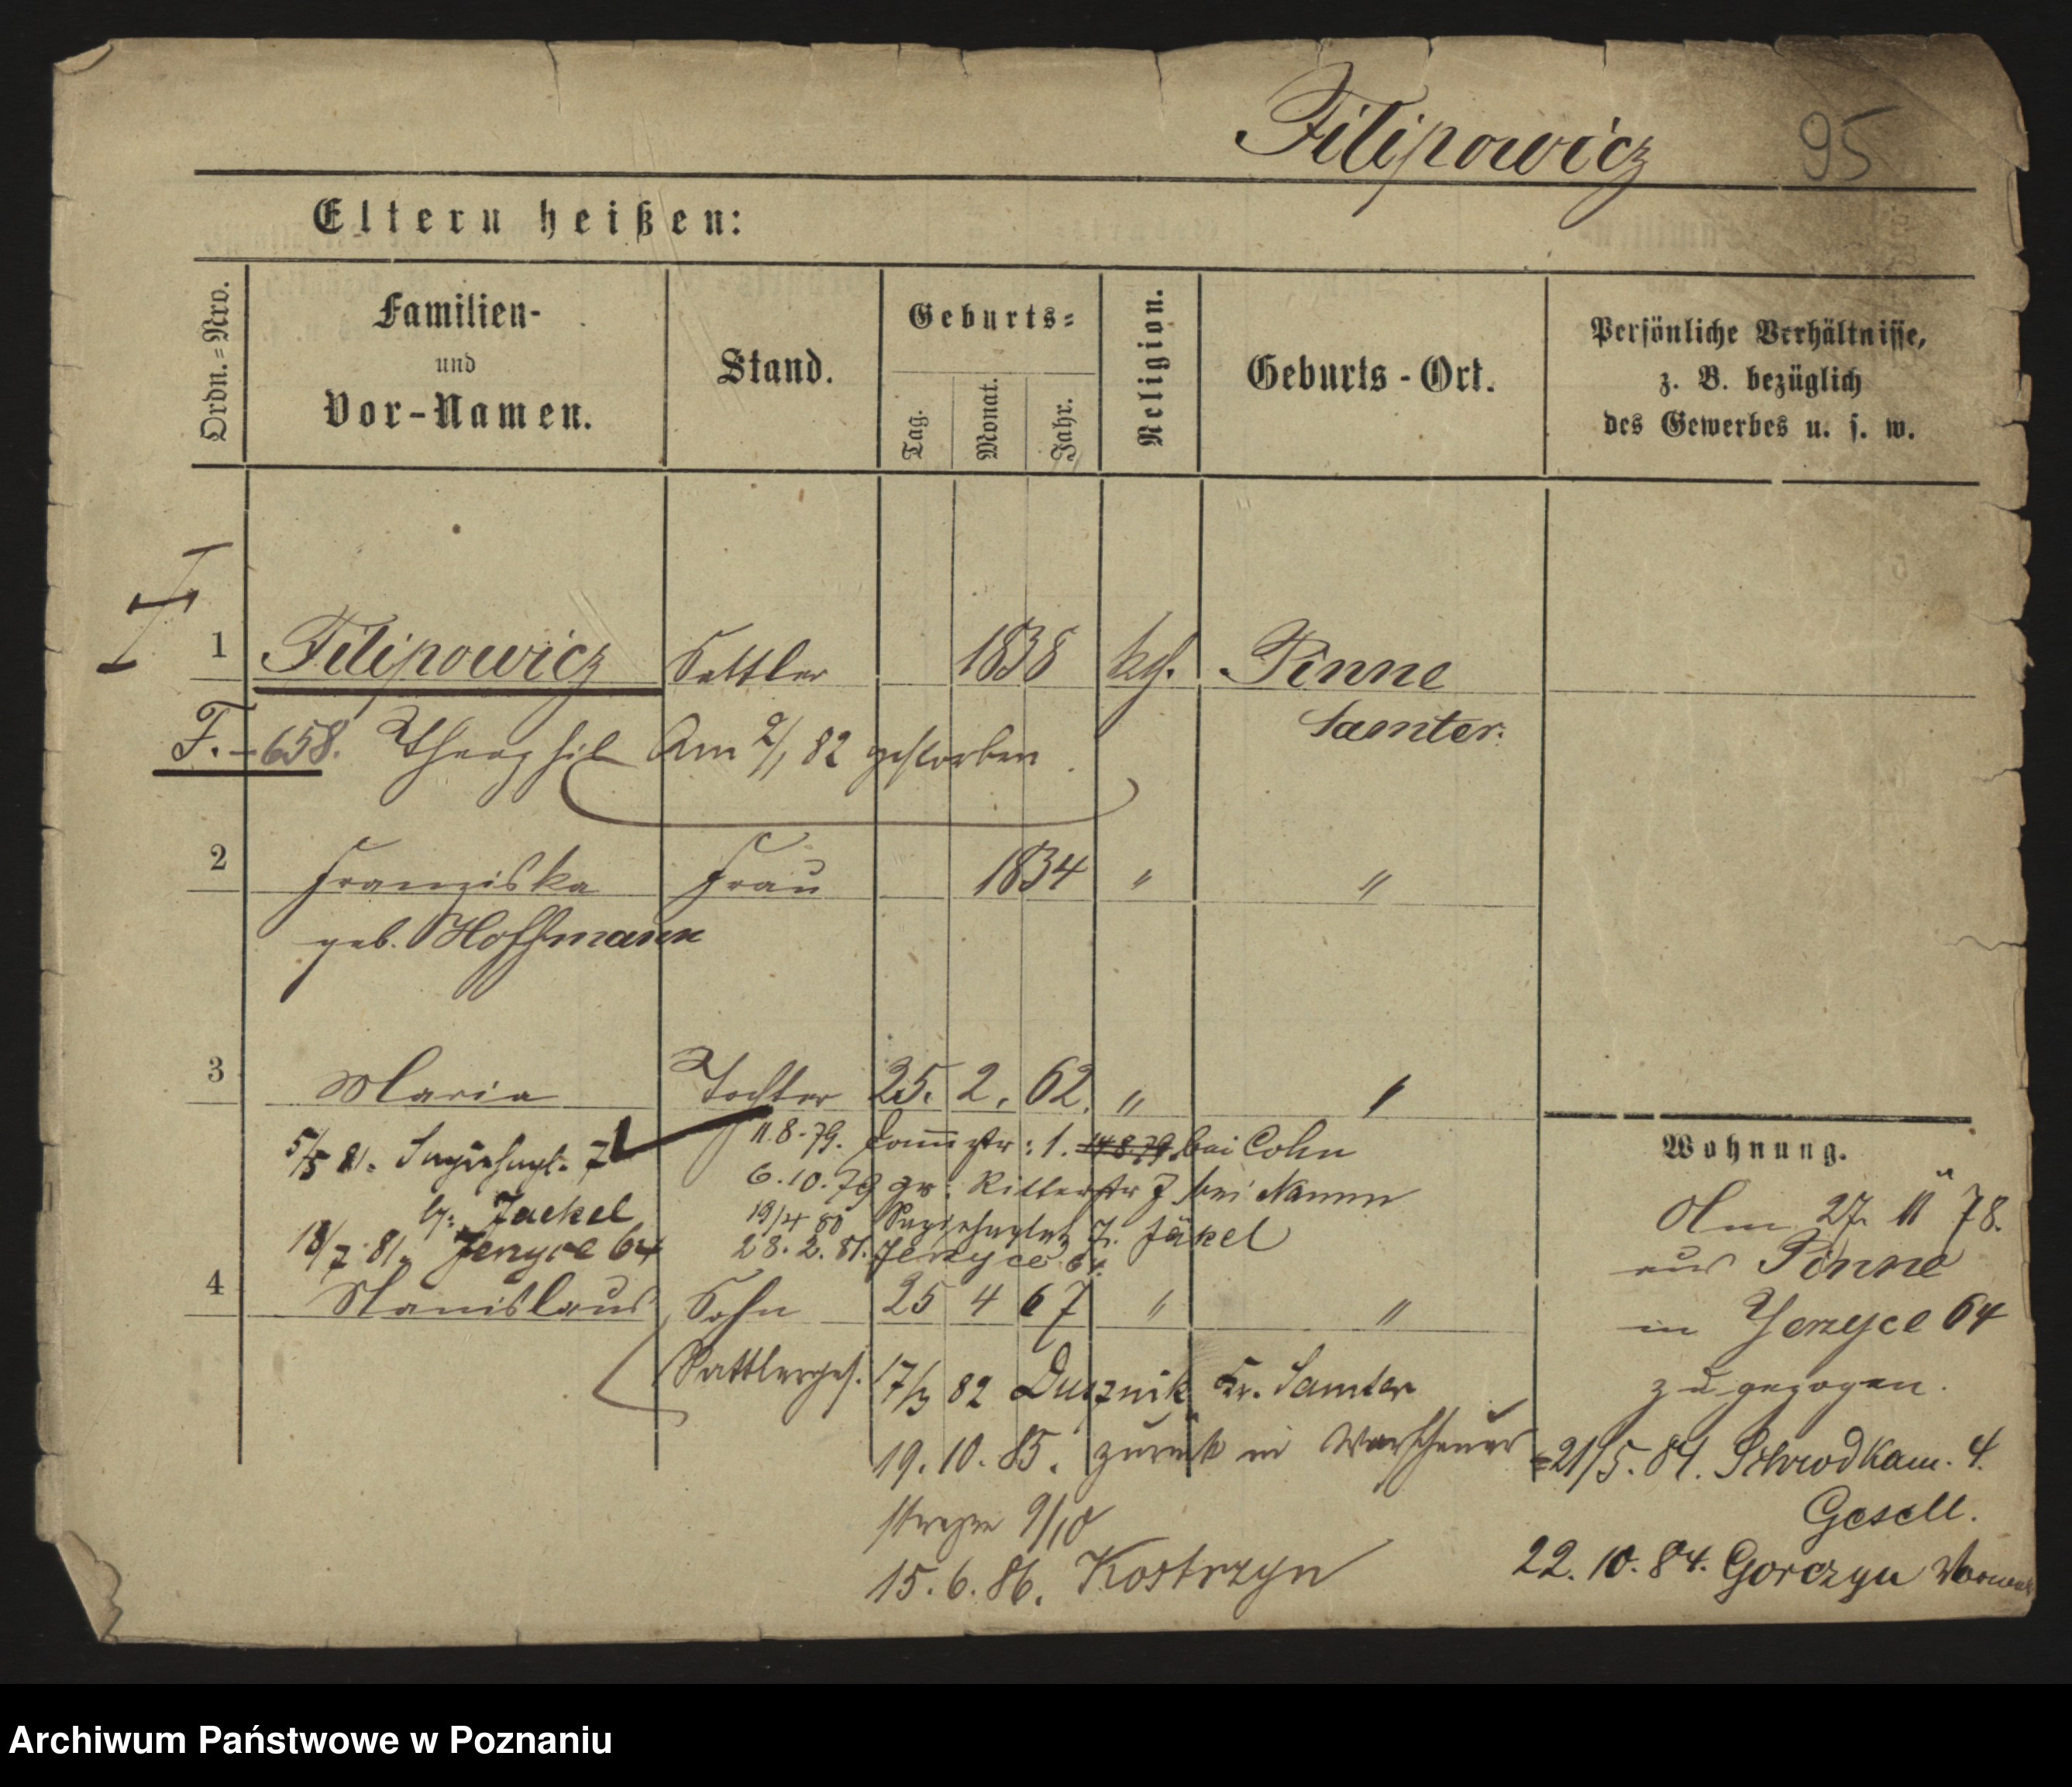 Filipowicz 95
Eltern heißen:
Ordn.=Nro.
Familien-
und
Vor-Namen.
Stand.
Geburts=
Tag.
Monat.
Jahr.
Religion.
Geburts-Ort.
Persönliche Verhältnisse,
z. B. bezüglich
des Gewerbes u. s. w.
1 Filipowicz Sattler 1838 kth. Pinne
Samter.
F. - 658. Theophil Am 2/1 82 gestorben
2 Franziska Frau 1834 " "
geb. Hoffmann
3 Maria Tochter 25. 2. 62. " "
5/5 81. Sapiehapl. 7
b: Jaekel
18/7 81. Jerzyce 64
11.8.79. Domstr: 1. 14.8.79. bei Cohn
6.10.79 gr: Ritterstr 7 bei Namm
19/4 80 Sapiehaplatz 7. Jäkel
28.2.81. Jerzyce 64.
4 Stanislaus Sohn 25 4 67 " "
Sattlerges. 17/3 82 Dusznik Kr. Samter
19.10.85. zurück in
9/10
15.6.86. Kostrzyn
Wohnung.
Am 27. 11 78.
aus Pinne
in Jerzyce 64
zugezogen.
21/5.84. Schrodkam. 4.
Gesell.
22.10.84. Gorczyn